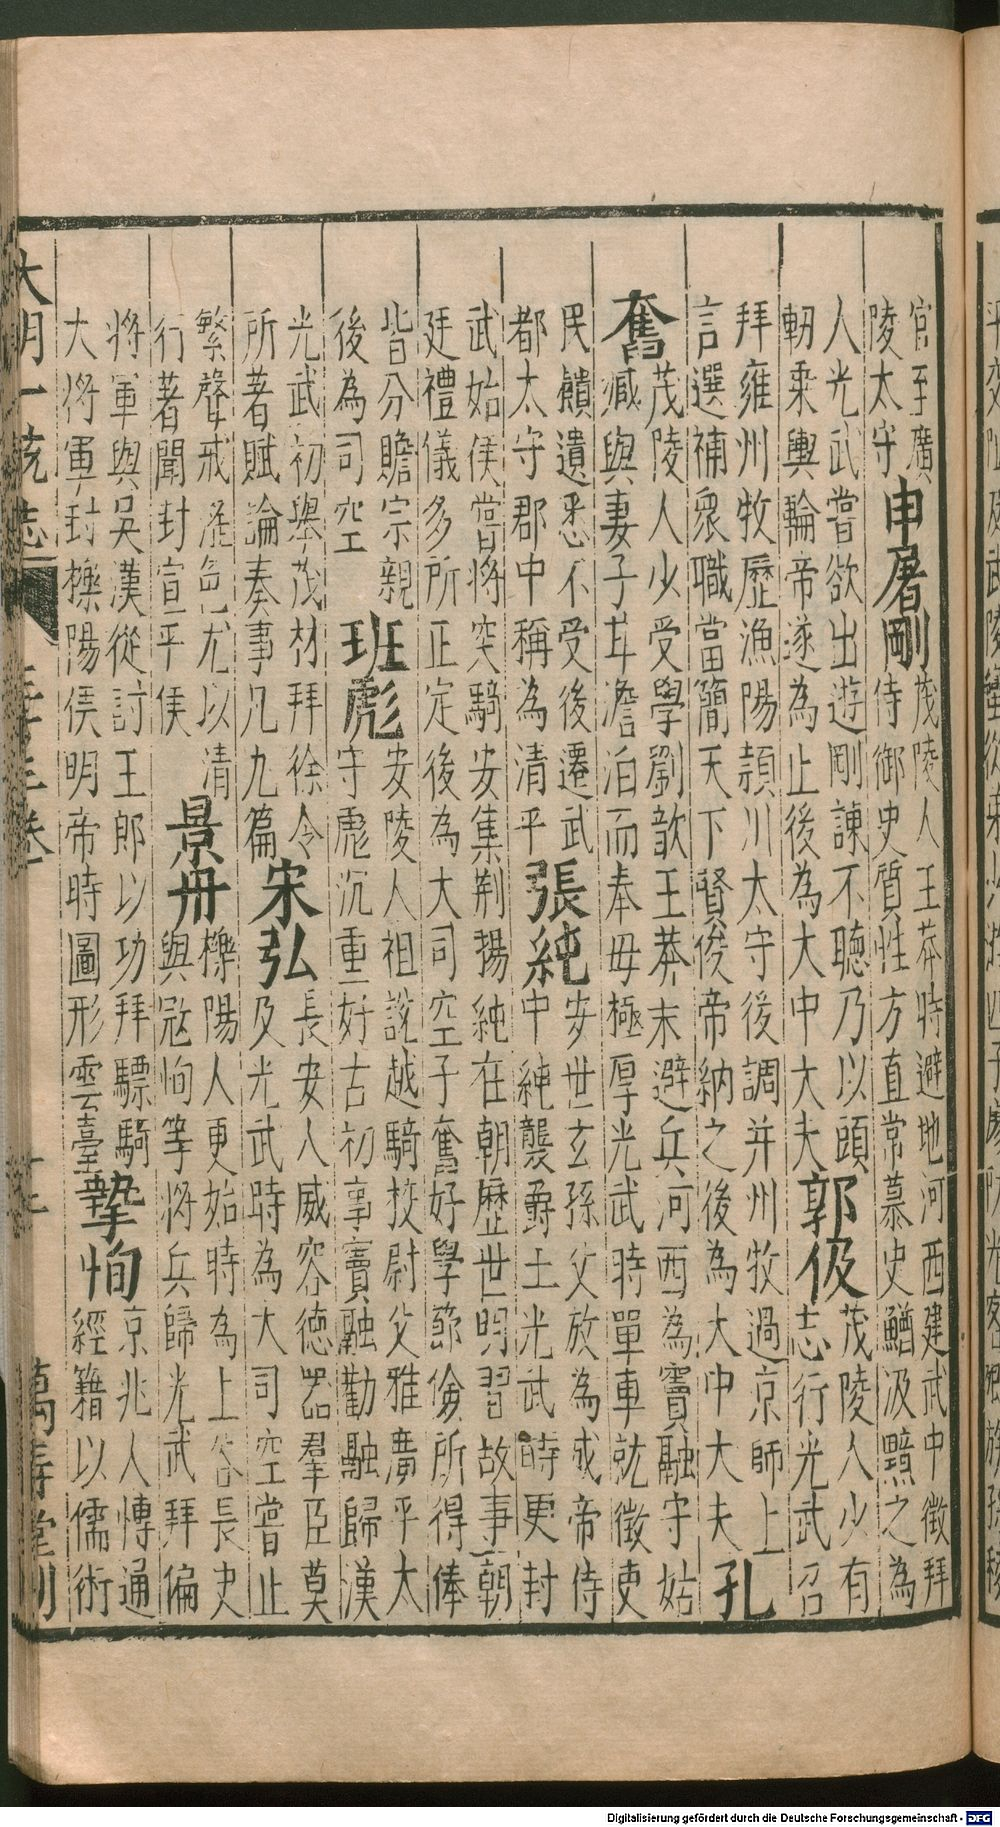 官至廣
陵太守
申屠剛
茂陵人王莽時避地河西建武中徵拜
侍御史質性方直常慕史鰌汲黯之為
人光武嘗欲出遊剛諫不聽乃以頭
軔乘輿輪帝遂為止後為大中大夫
郭伋
茂陵人少有
志行光武召
拜雍州牧歷漁陽潁川太守後調并州牧過京師上
言選補衆職當簡天下賢俊帝納之後為大中大夫
孔
奮
茂陵人少受學劉歆王莽末避兵河西為竇融守姑
臧與妻子茸澹泊而奉母極厚光武時單車就徵吏
民饋遺悉不受後遷武
都太守郡中稱為清平
張純
安世玄孫父放為成帝侍
中純襲爵土光武時更封
武始侯嘗將突騎安集荆揚純在朝歷世明習故事朝
廷禮儀多所正定後為大司空子奮好學節儉所得俸
皆分贍宗親
後為司空
班彪
安陵人祖說越騎校尉父雅廣平太
守彪沉重好古初事竇融勸融歸漢
光武初舉茂材拜徐令
所著賦論奏事凡九篇
宋弘
長安人威容德器羣臣莫
及光武時為大司空嘗止
繁聲戒淫色尤以清
行著聞封宣平侯
景丹
櫟陽人更始時為上谷長史
與寇恂等將兵歸光武拜偏
將軍與吳漢從討王郎以功拜驃騎
大將軍封櫟陽侯明帝時圖形雲臺
摯恂
京兆人博通
經籍以儒術
大明一統志 三十三卷 萬壽堂刊
Digitalisierung gefördert durch die Deutsche Forschungsgemeinschaft - DFG